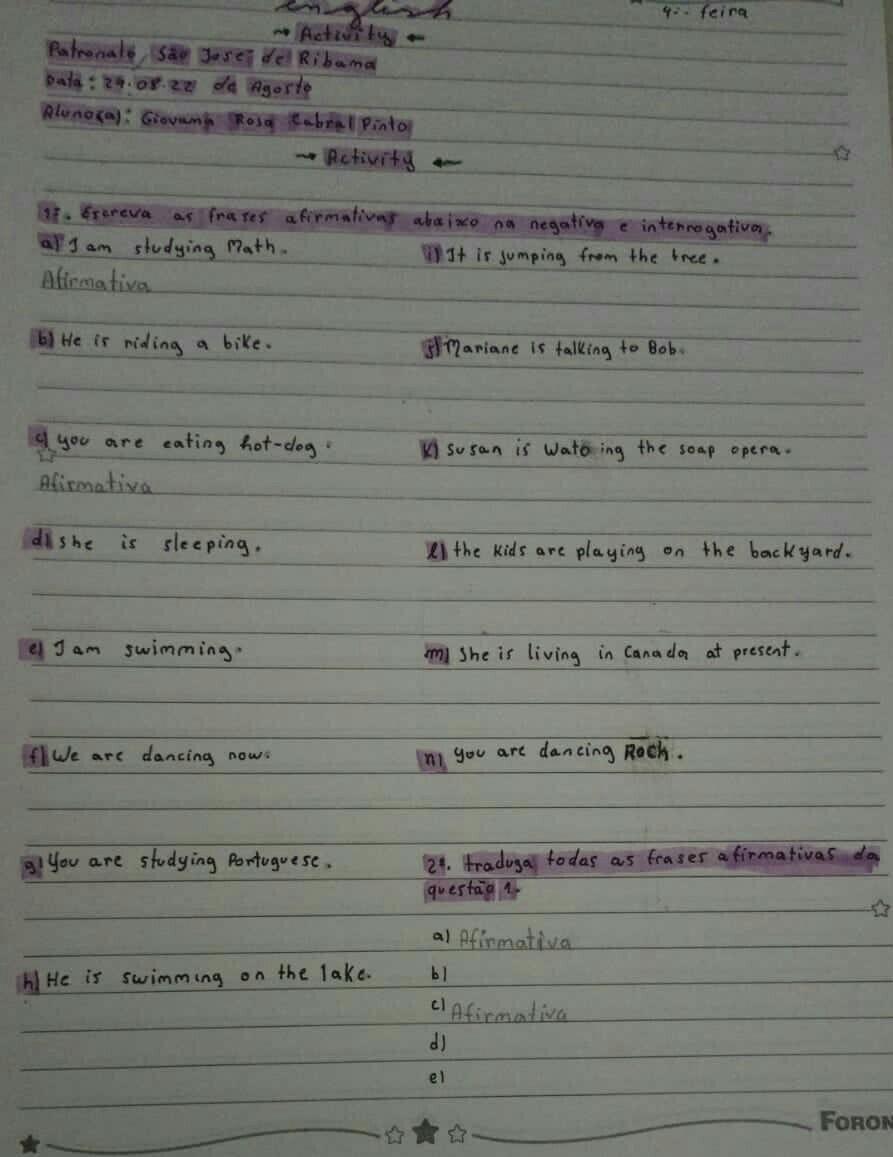 english
4ª- feira
→ Activity ←
Patronato São José de Ribama
Data: 24.08.22 de Agosto
Aluno(a): Giovana Rosa Cabral Pinto
→ Activity ←
1ª. Escreva as frases afirmativas abaixo na negativa e interrogativa.
a) I am studying Math.
Afirmativa
b) He is riding a bike.
c) you are eating hot-dog.
Afirmativa
d) she is sleeping.
e) I am swimming.
f) We are dancing now.
g) You are studying Portuguese.
h) He is swimming on the lake.
i) It is jumping from the tree.
j) Mariane is talking to Bob.
k) Susan is ing the soap opera.
l) the kids are playing on the backyard.
m) She is living in Canada at present.
n) you are dancing Rock.
2ª. traduza todas as frases afirmativas da
questão 1.
a) Afirmativa
b)
c) Afirmativa
d)
e)
FORON